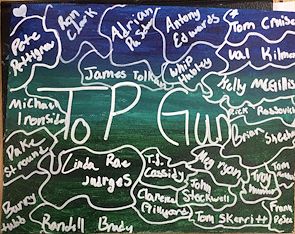 Pete
Pettigrew
Ron
Clark
Adrian
Pasdar
Antony
Edwards
Tom Cruise
Val Kilmer
James Tolkan
Whip
Hubley
Kelly McGillis
Michael
Ironside
Top Gun
Rick Rossovich
Brian Sheehan
Duke
Stroud
Linda Rae
Jurgens
T.J.
Cassidy
Meg Ryan
Troy
John
Stockwell
Clarence
Gilyard
Barry
Tubb
Randall Brady
Tom Skerritt
Frank
Pesce